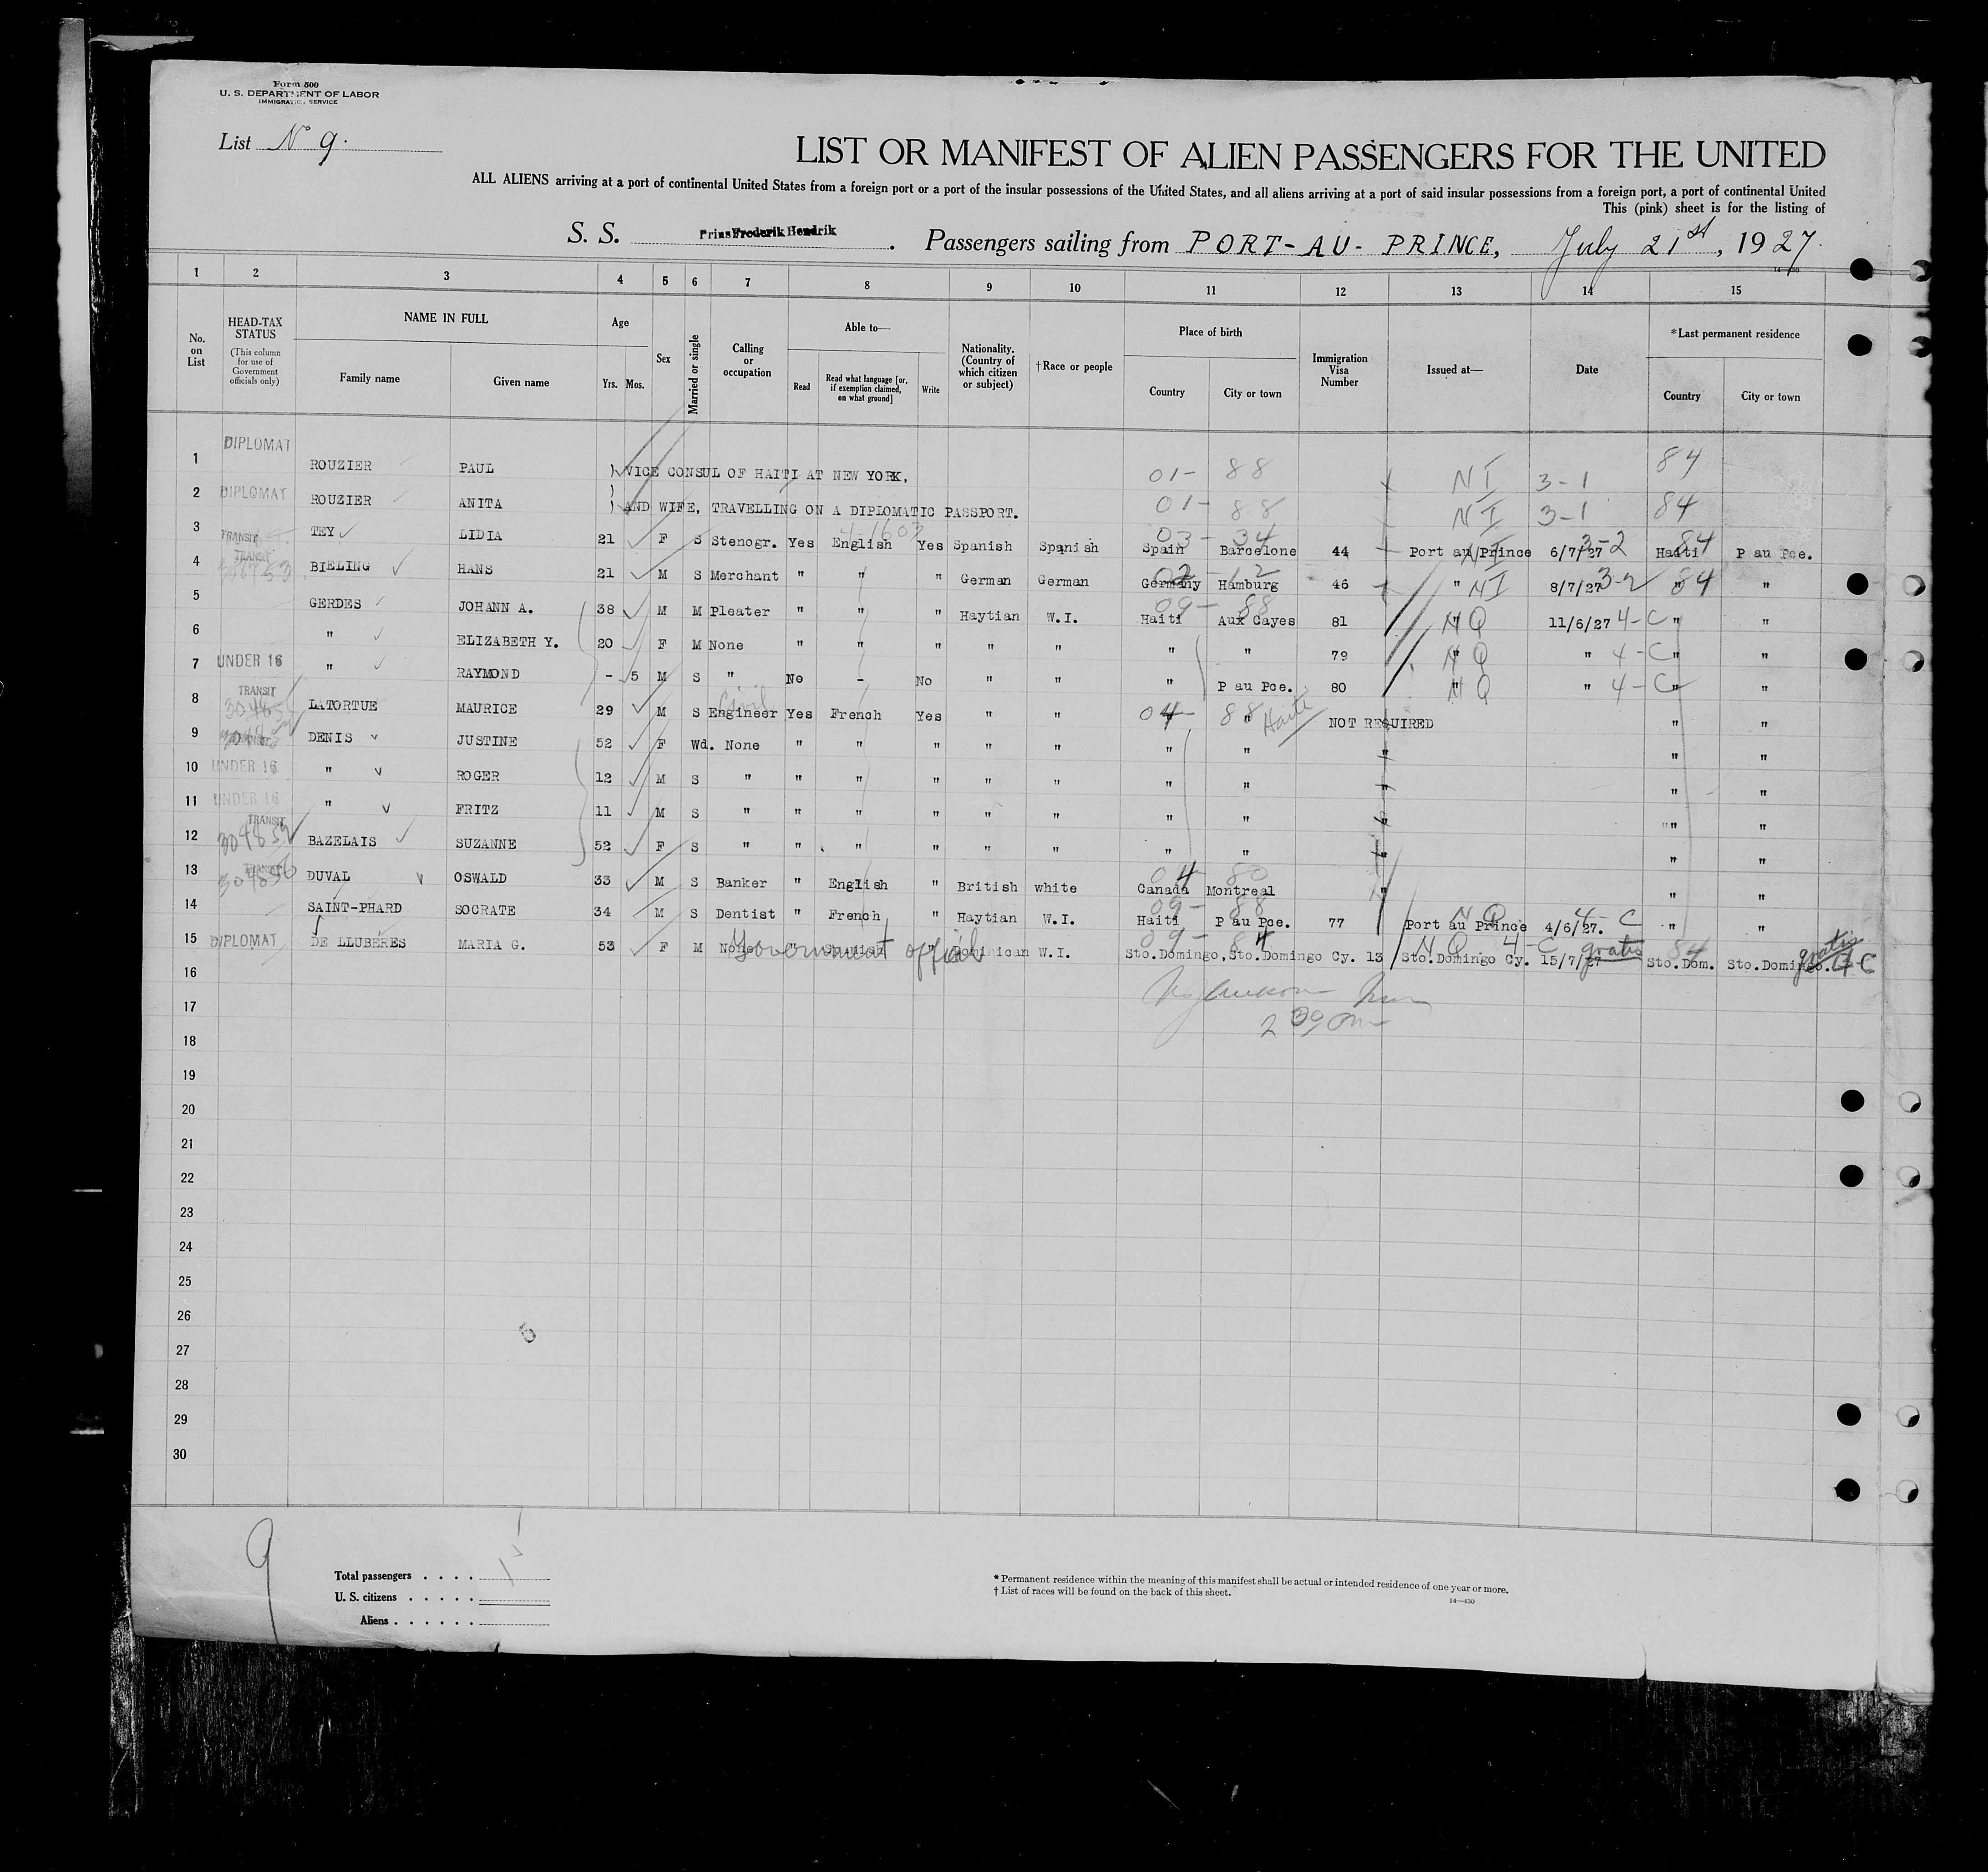 Form 500
U. S. DEPARTMENT OF LABOR
IMMIGRATION SERVICE
List No 9.
LIST OR MANIFEST OF ALIEN PASSENGERS FOR THE UNITED
ALL ALIENS arriving at a port of continental United States from a foreign port or a port of the insular possessions of the United States, and all aliens arriving at a port of said insular possessions from a foreign port, a port of continental United
This (pink) sheet is for the listing of
S. S. Prins Frederik Hendrik. Passengers sailing from PORT-AU-PRINCE, July 21st, 1927.
14-430
1 2 3 4 5 6 7 8 9 10 11 12 13 14 15
No. on List
HEAD-TAX STATUS (This column for use of Government officials only)
NAME IN FULL Family name Given name
Age Yrs. Mos.
Sex
Married or single
Calling or occupation
Able to— Read Read what language [or, if exemption claimed, on what ground] Write
Nationality. (Country of which citizen or subject)
† Race or people
Place of birth Country City or town
Immigration Visa Number
Issued at—
Date
*Last permanent residence Country City or town
1 DIPLOMAT ROUZIER PAUL ) VICE CONSUL OF HAITI AT NEW YORK, 01- 88 NI 3-1 84
2 DIPLOMAT ROUZIER ANITA ) AND WIFE, TRAVELLING ON A DIPLOMATIC PASSPORT. 01- 88 NI 3-1 84
3 TRANSIT TEY LIDIA 21 F S Stenogr. Yes English 4-1603 Yes Spanish Spanish Spain 03- 34 Barcelone 44 Port au Prince NI 6/7/27 3-2 Haiti 84 P au Pce.
4 TRANSIT BIELING HANS 21 M S Merchant " " " German German Germany 02-12 Hamburg 46 " NI 8/7/27 3-2 " 84 "
5 GERDES JOHANN A. 38 M M Pleater " " " Haytian W.I. Haiti 09- 88 Aux Cayes 81 " NQ 11/6/27 4-C " "
6 " ELIZABETH Y. 20 F M None " " " " " " " 79 " NQ " 4-C " "
7 UNDER 16 " RAYMOND - 5 M S " No - No " " " P au Pce. 80 " NQ " 4-C " "
8 TRANSIT LATORTUE MAURICE 29 M S Civil Engineer Yes French Yes " " 04- 88 " Haiti NOT REQUIRED " "
9 TRANSIT DENIS JUSTINE 52 F Wd. None " " " " " " " " " "
10 UNDER 16 " ROGER 12 M S " " " " " " " " " " "
11 UNDER 16 " FRITZ 11 M S " " " " " " " " " " "
12 TRANSIT 304852 BAZELAIS SUZANNE 52 F S " " " " " " " " " " "
13 TRANSIT 304850 DUVAL OSWALD 33 M S Banker " English " British white Canada 04 80 Montreal " " "
14 SAINT-PHARD SOCRATE 34 M S Dentist " French " Haytian W.I. Haiti 09- 88 P au Pce. 77 Port au Prince NQ 4/6/27. 4-C " "
15 DIPLOMAT DE LLUBERES MARIA G. 53 F M None Government official " Spanish " Dominican W.I. 09- 84 Sto.Domingo, Sto.Domingo Cy. 13 Sto.Domingo Cy. NQ 4-C 15/7/27 gratis Sto.Dom. 84 Sto.Domingo. gratis 4-C
16
17
2 30 pm
18
19
20
21
22
23
24
25
26
27
28
29
30
9
Total passengers . . . . 15
U. S. citizens . . . . .
Aliens . . . . . .
* Permanent residence within the meaning of this manifest shall be actual or intended residence of one year or more.
† List of races will be found on the back of this sheet.
14—430